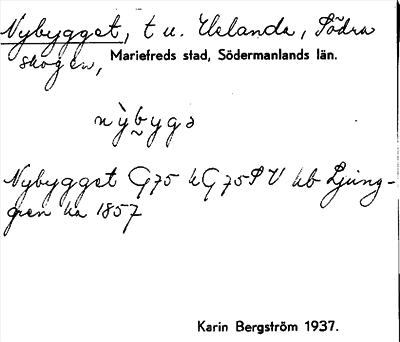 Nybygget, t u. Uelanda, Södra
skogen, Mariefreds stad, Södermanlands län.
nỳbygə
Nybygget G75 kG75SV hb Ljung-
gren ka 1857
Karin Bergström 1937.